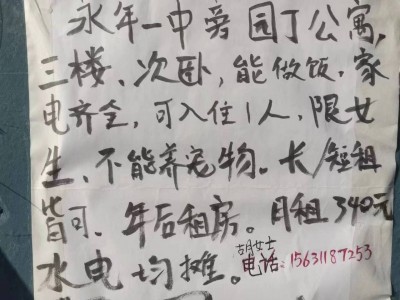 永年一中旁园丁公寓,
三楼、次卧,能做饭,家
电齐全,可入住1人,限女
生、不能养宠物。长/短租
皆可、年后租房。月租340元
水电均摊。胡女士电话:15631187253